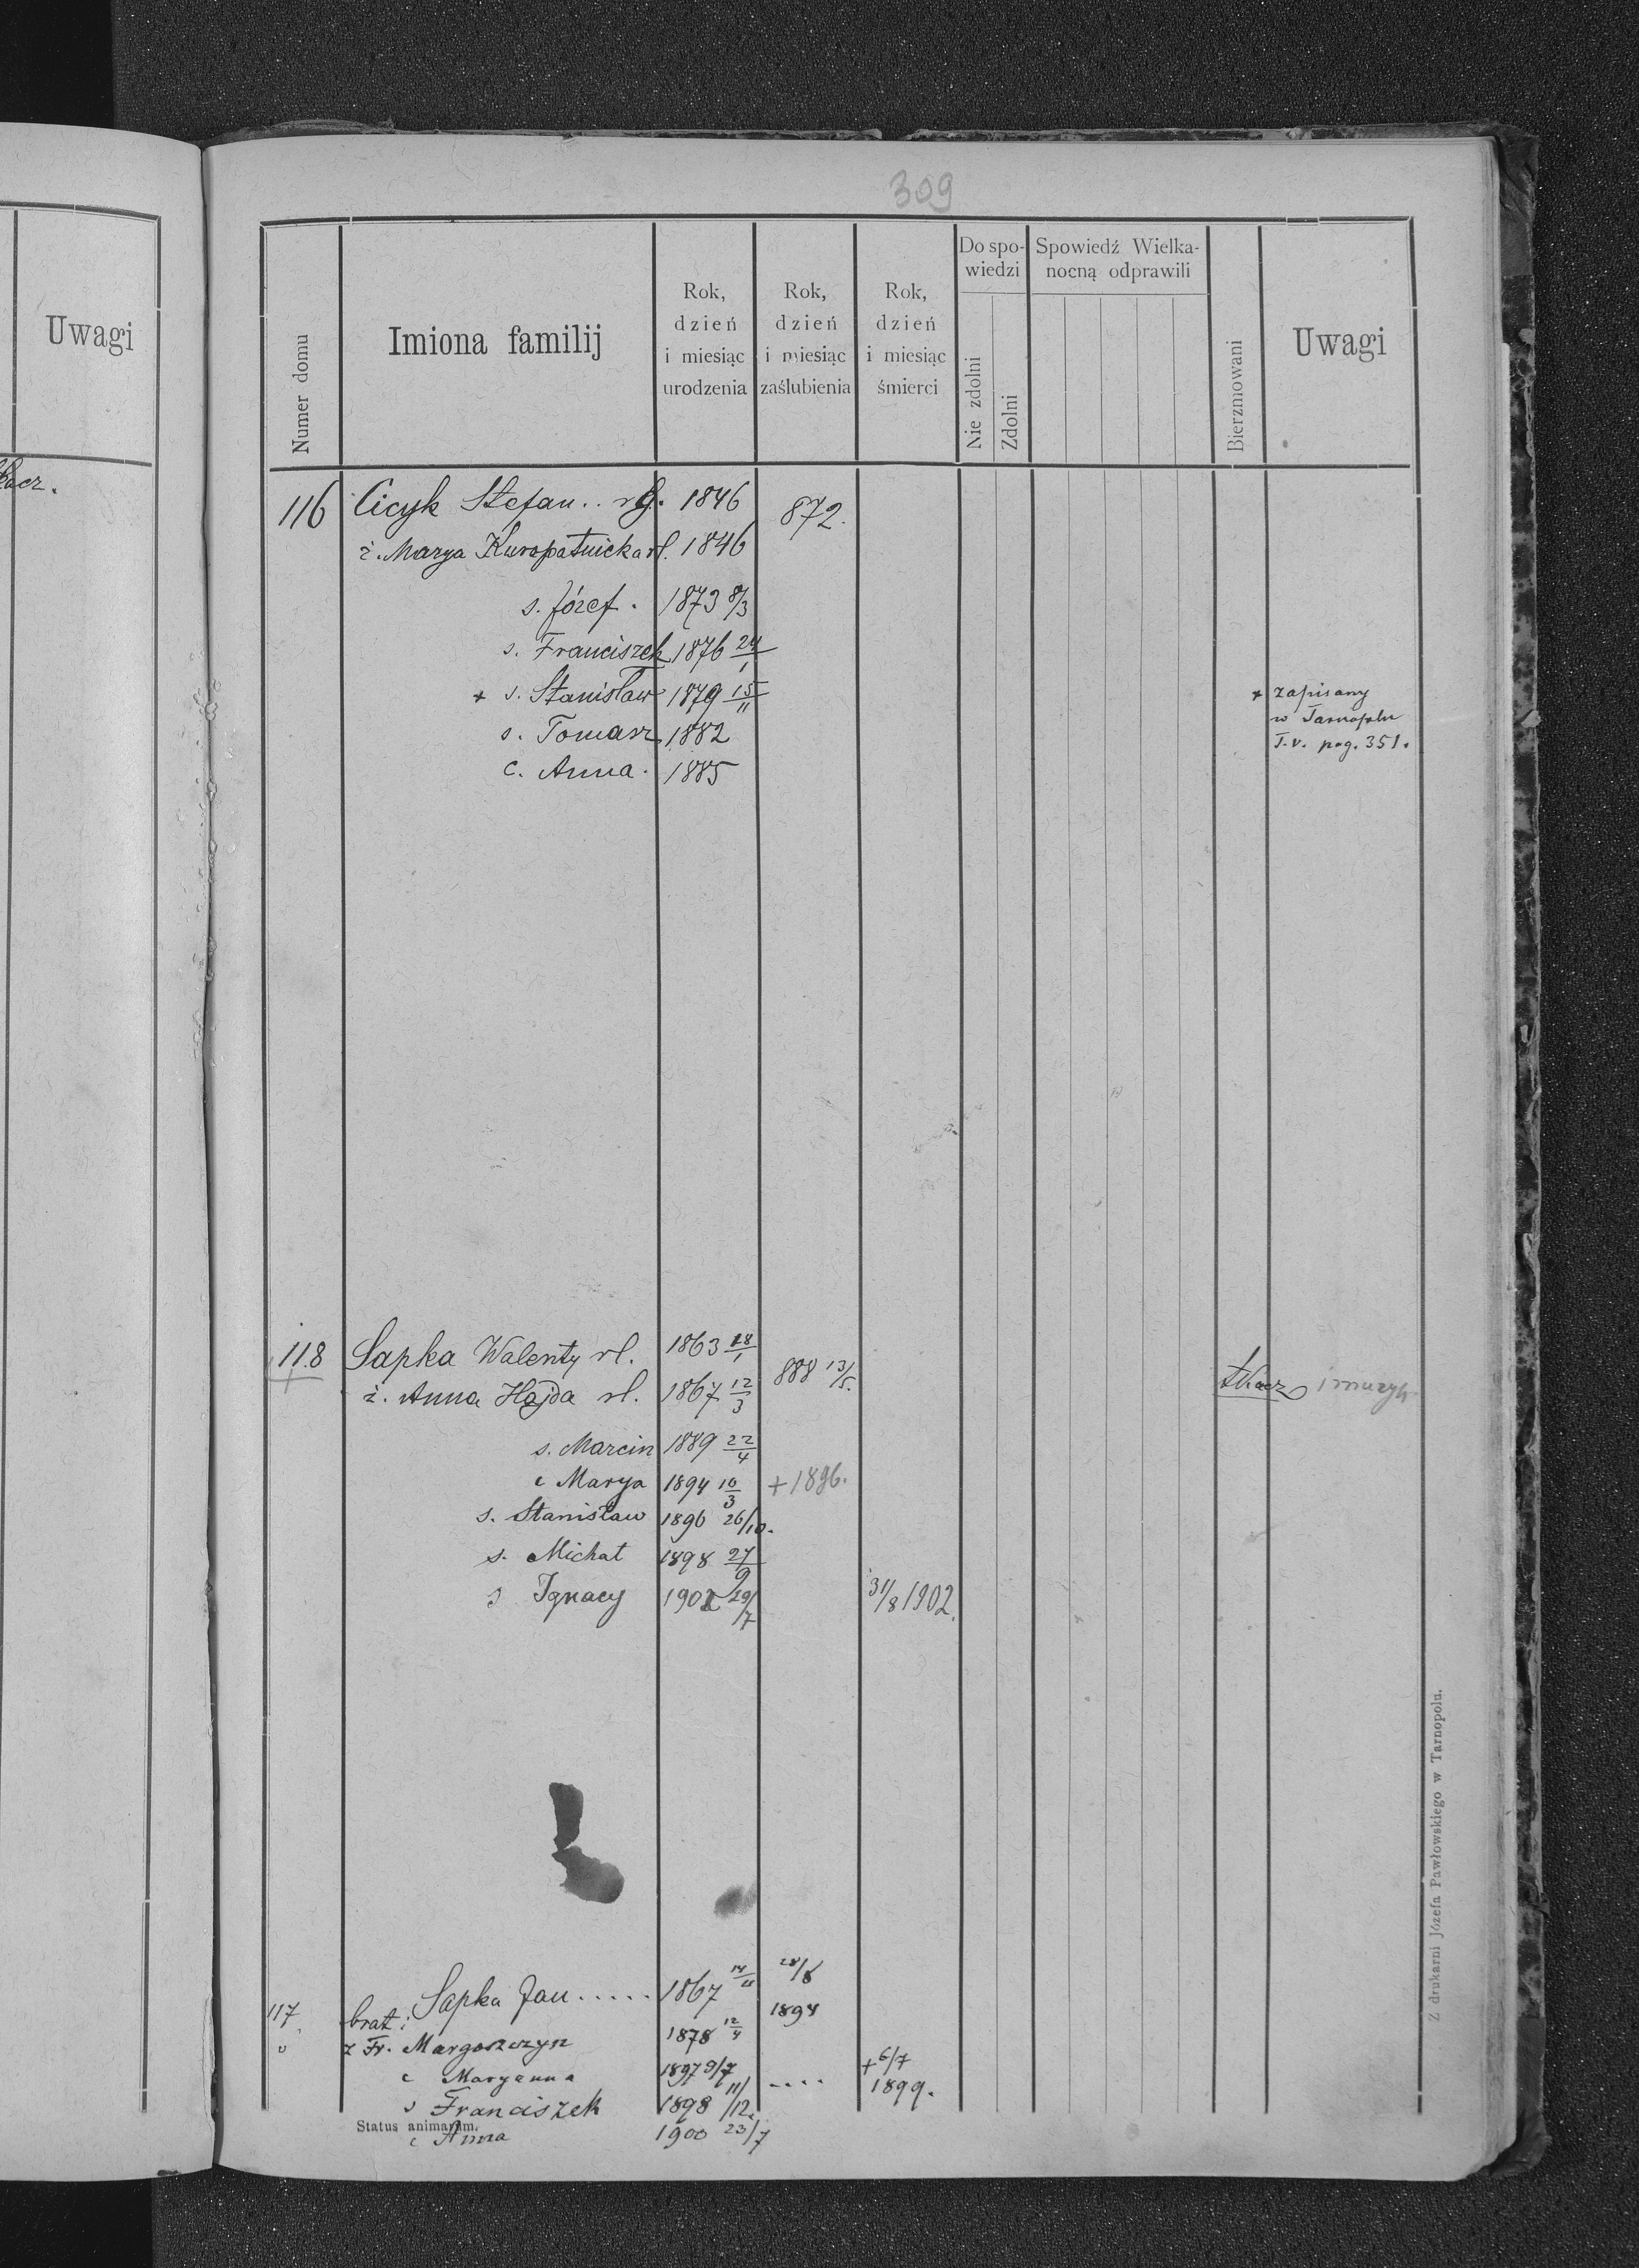 309
Uwagi
Numer domu
Imiona familij
Rok, dzień i miesiąc urodzenia
Rok, dzień i miesiąc zaślubienia
Rok, dzień i miesiąc śmierci
Do spowiedzi
Nie zdolni
Zdolni
Spowiedź Wielkanocną odprawili
Bierzmowani
Uwagi
116 Cicyk Stefan .. rg. 1846 872.
ż. Marya Kuropatnicka rl. 1846
s. Józef . 1873 8/3
s. Franciszek 1876 24/1
+ s. Stanisław 1879 15/11 + zapisany
w Tarnopolu
s. Tomasz 1882 T.v. pag. 351.
c. Anna . 1885
118 Sapka Walenty rl. 1863 18/1 888 13/5. tkacz i muzyk
ż. Anna Hajda rl. 1867 12/3
s. Marcin 1889 22/4
c Marya 1894 10/3 + 1896.
s. Stanisław 1896 26/10.
s. Michał 1898 27/9
s Ignacy 1902 29/7 31/8 1902.
117 brat: Sapka Jan ..... 1867 28/6 1894
ż Fr. Margoszczyn 1878 12/4
c Maryanna 1897 9/7 .... + 6/7 1899.
s Franciszek 1898 11/12.
Status animarum.
c Anna 1900 23/7
Z drukarni Józefa Pawłowskiego w Tarnopolu.